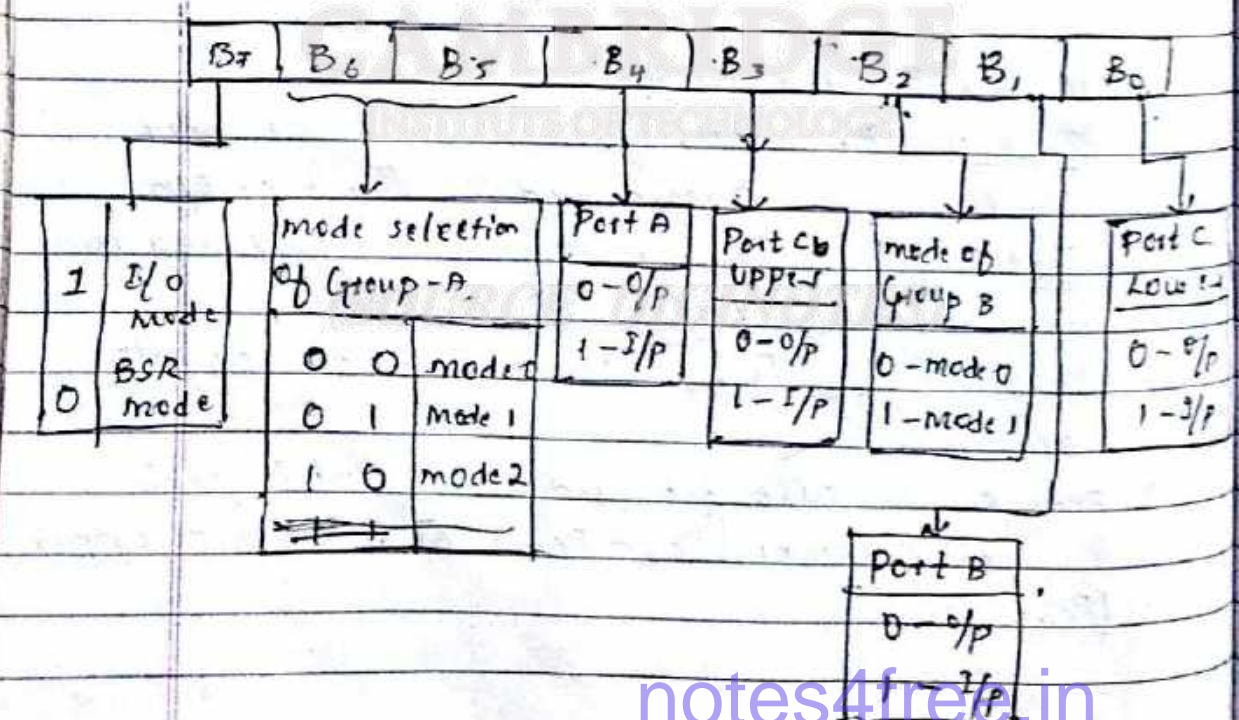 CAMBRIDGE
INSTITUTE OF TECHNOLOGY
B7 B6 B5 B4 B3 B2 B1 B0
1 I/O mode
0 BSR mode
mode selection
of Group-A
0 0 mode 0
0 1 Mode 1
1 0 mode 2
Port A
0-O/P
1-I/P
Port C
Upper
0-O/P
1-I/P
mode of
Group B
0-mode 0
1-mode 1
Port C
Lower
0-O/P
1-I/P
Port B
0-O/P
1-I/P
notes4free.in